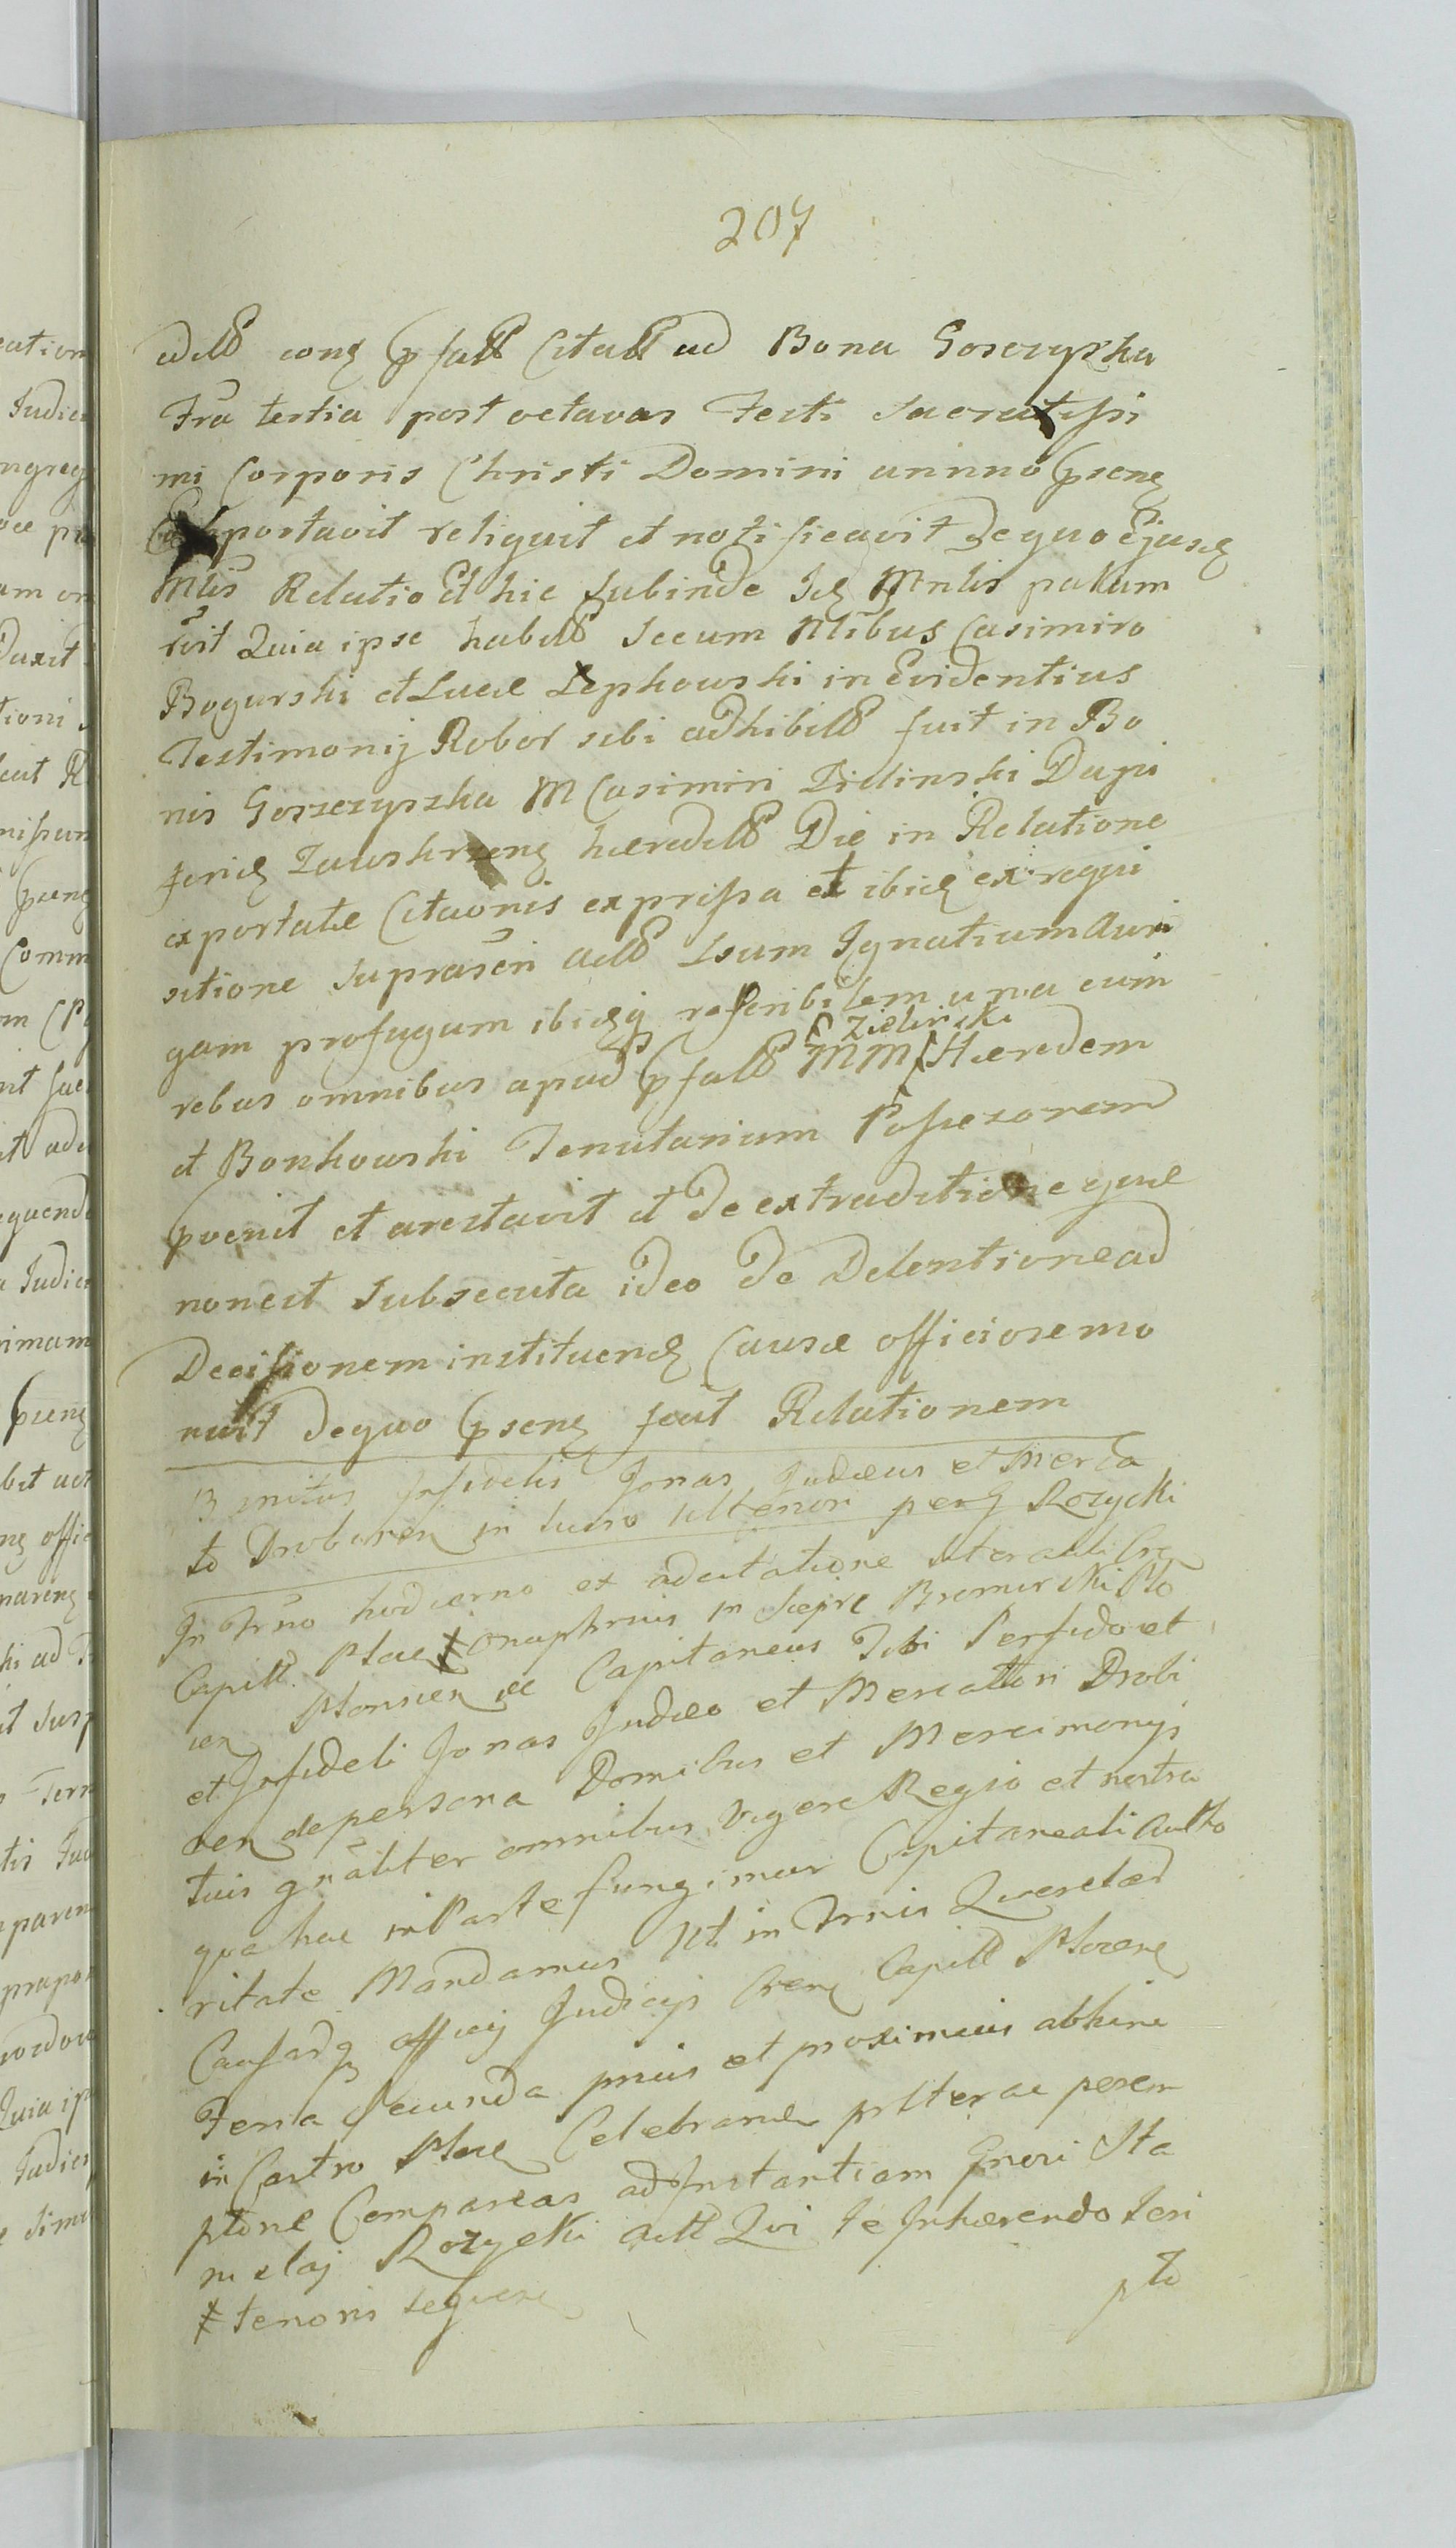 207
conq pfatt Citatt ad Bona Goszczyszka
Fria tertia post octavas Festi Sacratissi
mi Corporis Christi Domini aninno psenq
portavit reliquit et notificavit De quo Ejusq
Mlis Relatio Et hic subinde Idq Mnlis palam
Quia ipse habitt secum Nlibus Casimiro
Bogurski et Lucae Lepkowski in Evidentius
Testimonij Robor sibi adhibitt fuit in Bo
nis Goszczyszka M Casimiri Zielinski Dapi
feridq Zawskrzenq haereditt Die in Relatione
exportatae Citaonis expressa et ibidq ex requi
sitione suprascri actt Ignatium Auri
gam profugum ibidqz reperibilem una cum
rebus omnibus apud pfatt MM Zielinski Haeredem
et Bonkowski Tenutarium Possessorem
pvenit et arestavit et De extraditione quae
non est subsecuta ideo De Detentione ad
Decisionem instituendq Causae officiose mo
nuit De quo psenq fecit Relationem
Infidelis Jonas Judaeus et Merca
to Drobinen in suo ulteriori perq Rozycki
In Trno hodierno ex adcitatione literali Cren
Capitt. Plocq ‡ Onuphrius in Siepre Bromirski Plo
cen Plonscen Capitaneus Tibi Perfido et
et Infideli Jonas Judaeo et Mercatori Drobi
nen de persona Domibus et Mercimonijs
tuis gnaliter omnibus Vigore Regio et nostra
qua hac in Parte fungimur Capitaneali Autho
ritate Mandamus Ut in Trnis Querelarq
Causarq officij Judicijs Cren Capitt Plocen
Feria Secunda pnis et proximius abhinc
in Castro Plocq Celebran plter ac perem
ptorie Compareas ad Instantiam Gnosi Sta
nislaj Rozycki actt Qui te Inhaerendo Scri
pto
‡ tenoris seqven